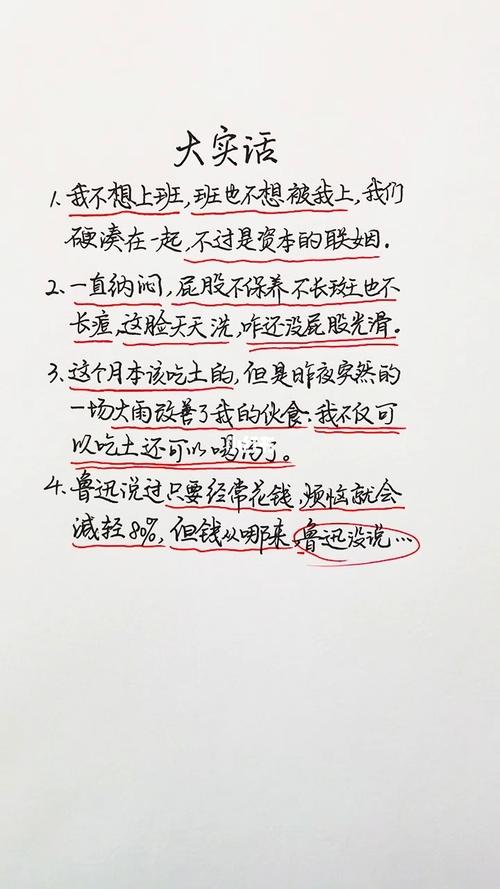 大实话
1. 我不想上班,班也不想被我上,我们
硬凑在一起,不过是资本的联姻.
2. 一直纳闷,屁股不保养不长斑也不
长痘,这脸天天洗,咋还没屁股光滑。
3. 这个月本该吃土的,但是昨夜突然的
一场大雨改善了我的伙食.我不仅可
以吃土还可以喝汤了。
4. 鲁迅说过只要经常花钱,烦恼就会
减轻80%,但钱从哪来,鲁迅没说...